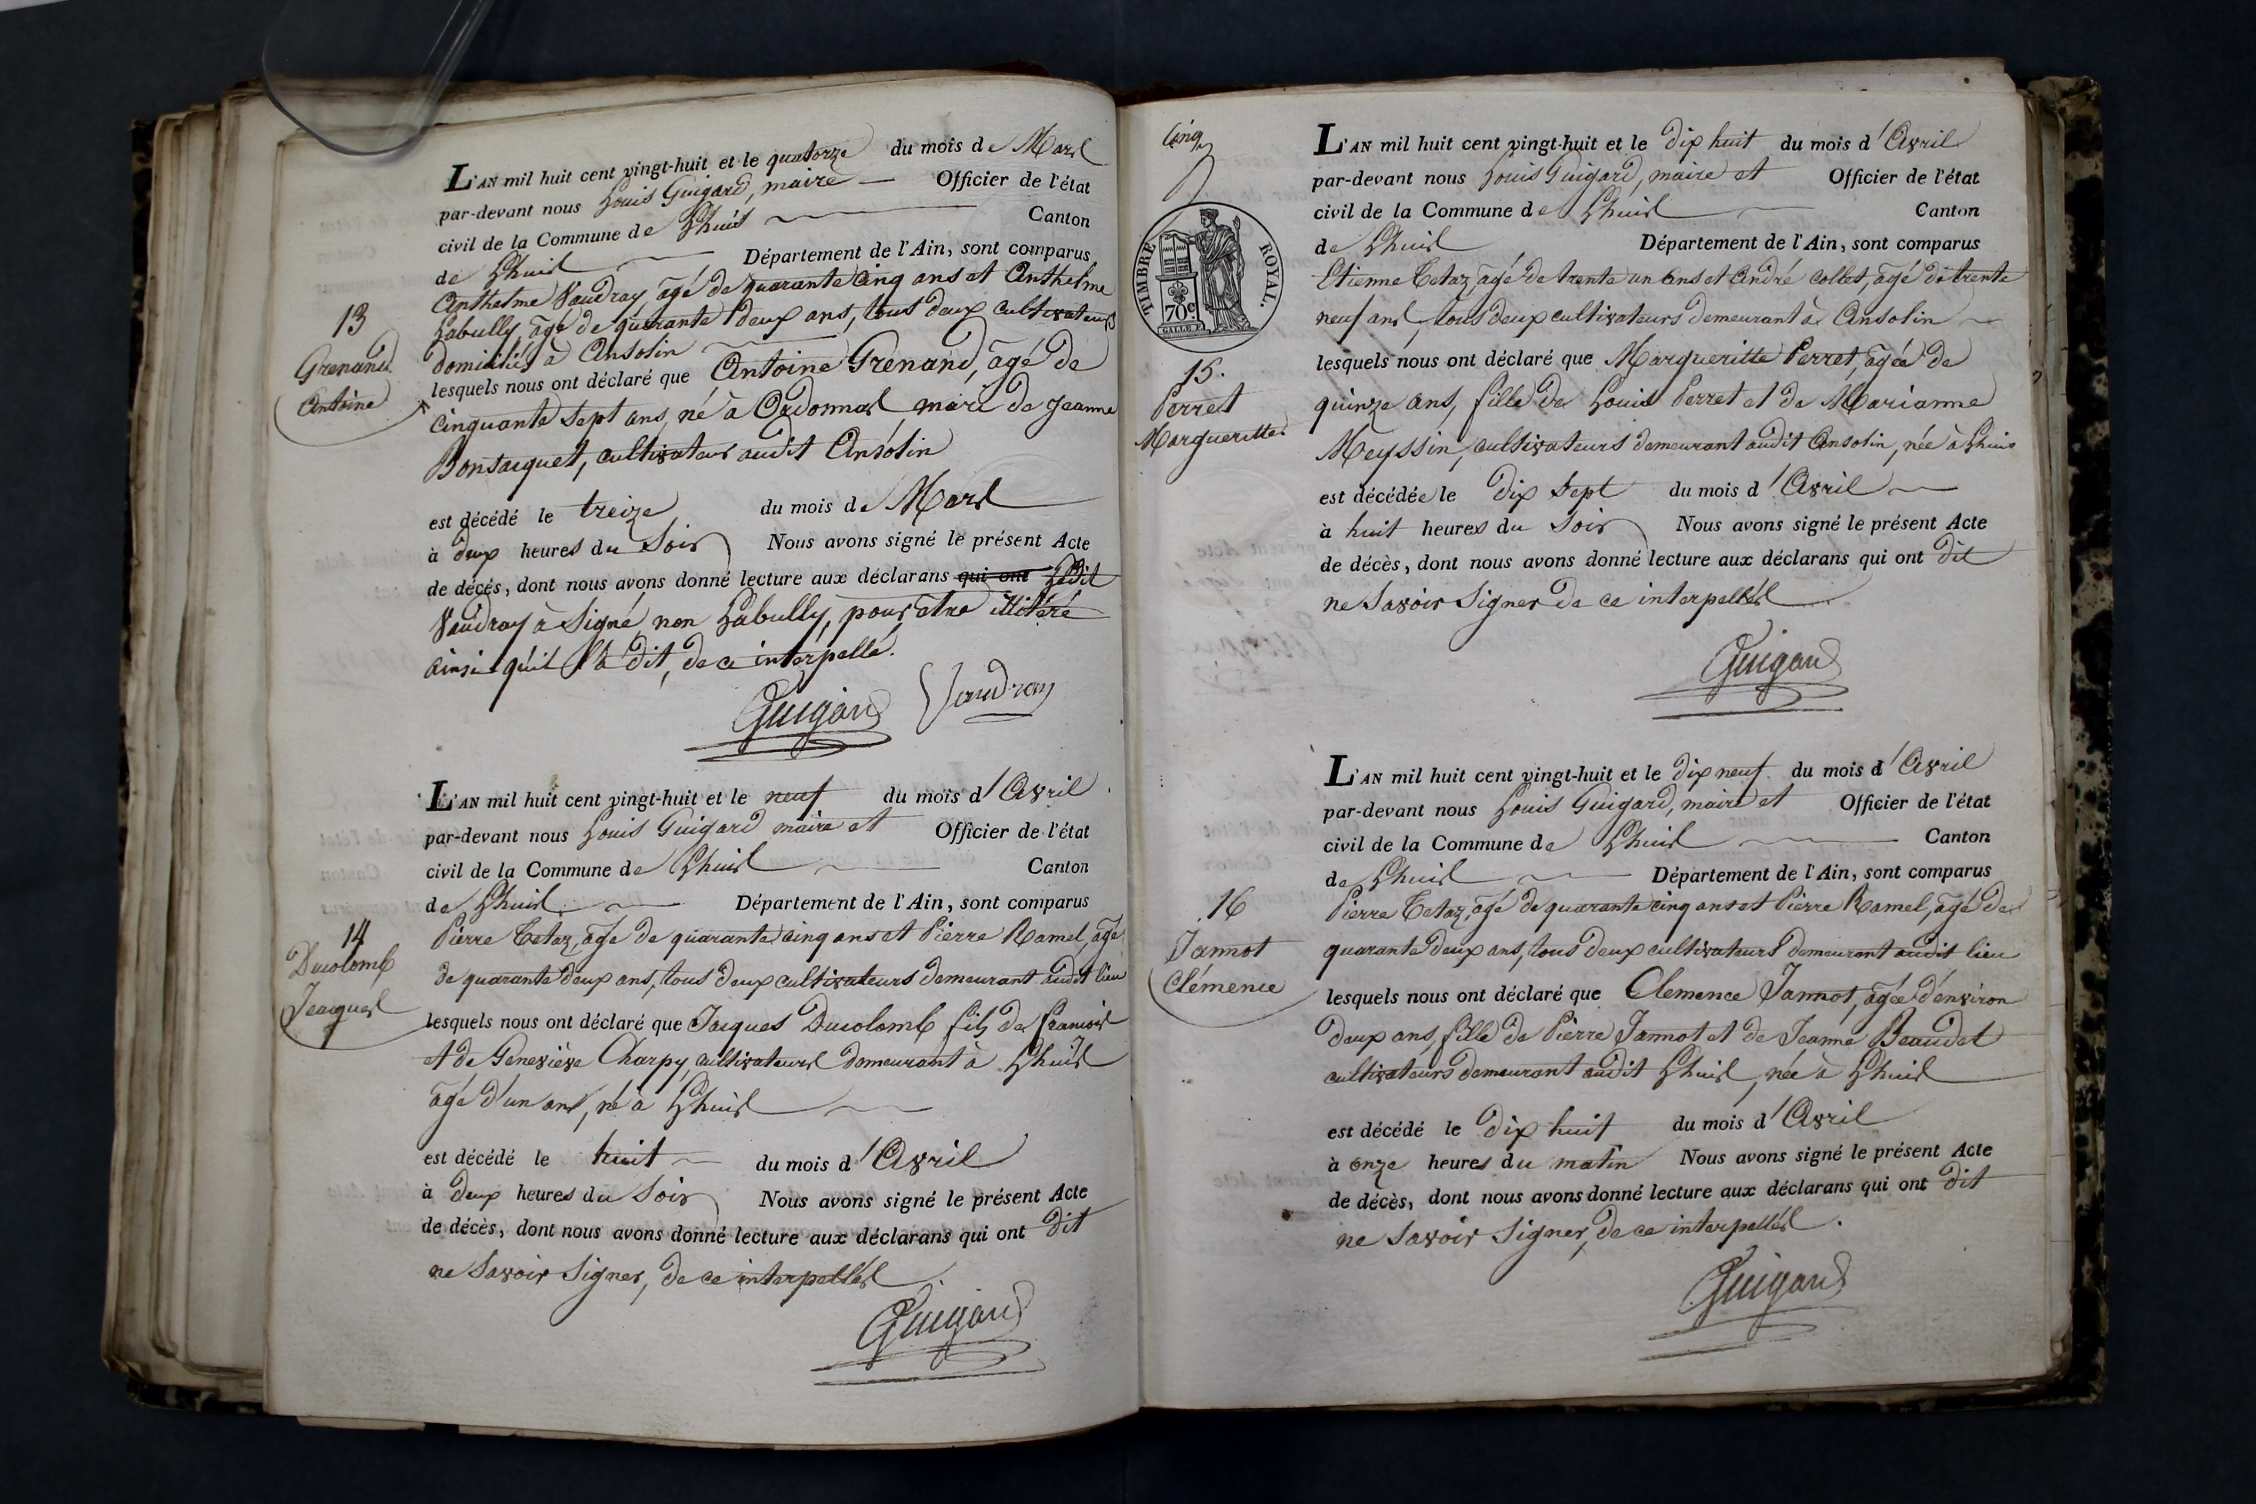 L'AN mil huit cent vingt-huit et le quatorze du mois de Mars
par-devant nous Louis Guigard, maire Officier de l'état
civil de la Commune de Lhuis Canton
de Lhuis Département de l'Ain, sont comparus
Anthelme Vaudray âgé de quarante cinq ans et Anthelme
Labully âgé de quarante deux ans, tous deux cultivateurs
domiciliés à Ansolin
lesquels nous ont déclaré que Antoine Grenand, âgé de
cinquante sept ans, né à Ordonnas mari de Jeanne
Bonsacquet, cultivateur audit Ansolin
est décédé le treize du mois de Mars
à deux heures du Soir Nous avons signé le présent Acte
de décès, dont nous avons donné lecture aux déclarans qui ont Ledit
Vaudray à Signé non Labully, pour être illitéré
ainsi qu'il l'a dit, de ce interpellé.
Guigard Vaudray
13
Grenand
Antoine
L'AN mil huit cent vingt-huit et le neuf du mois d'Avril
par-devant nous Louis Guigard maire et Officier de l'état
civil de la Commune de Lhuis Canton
de Lhuis Département de l'Ain, sont comparus
Pierre Tetaz, âgé de quarante cinq ans et Pierre Ramel, âgé
de quarante deux ans, tous deux cultivateurs demeurant audit lieu
lesquels nous ont déclaré que Jacques Ducolomb fils de francois
et de Geneviève Charpy, cultivateurs demeurant à Lhuis
âgé d'un ans, né à Lhuis
est décédé le huit du mois d'Avril
à deux heures du Soir Nous avons signé le présent Acte
de décès, dont nous avons donné lecture aux déclarans qui ont dit
ne Savoir Signer, de ce interpellés
Guigard
14
Ducolomb
Jeacques
Cinq
TIMBRE ROYAL.
70c
L'AN mil huit cent vingt-huit et le dix huit du mois d'Avril
par-devant nous Louis Guigard, maire et Officier de l'état
civil de la Commune de Lhuis Canton
de Lhuis Département de l'Ain, sont comparus
Etienne Tetaz, âgé de trente un ans et André Collet, âgé de trente
neuf ans, tous deux cultivateurs demeurant à Ansolin
lesquels nous ont déclaré que Margueritte Perret, agée de
quinze ans, fille de Louis Perret et de Marianne
Meyssin, cultivateurs demeurant audit Ansolin, née à Lhuis
est décédée le dix sept du mois d'Avril
à huit heures du Soir Nous avons signé le présent Acte
de décès, dont nous avons donné lecture aux déclarans qui ont dit
ne Savoir Signer de ce interpellés
Guigard
15.
Perret
Margueritte
L'AN mil huit cent vingt-huit et le dix neuf du mois d'Avril
par-devant nous Louis Guigard, maire et Officier de l'état
civil de la Commune de Lhuis Canton
de Lhuis Département de l'Ain, sont comparus
Pierre Tetaz, âgé de quarante cinq ans et Pierre Ramel, âgé de
quarante deux ans, tous deux cultivateurs demeurant audit lieu
lesquels nous ont déclaré que Clemence Jannot, âgée d'environ
deux ans, fille de Pierre Jannot et de Jeanne Beaudet
cultivateurs demeurant audit Lhuis, née à Lhuis
est décédé le dix huit du mois d'Avril
à onze heures du matin Nous avons signé le présent Acte
de décès, dont nous avons donné lecture aux déclarans qui ont dit
ne Savoir Signer, de ce interpellés.
Guigard
16
Jannot
Clémence